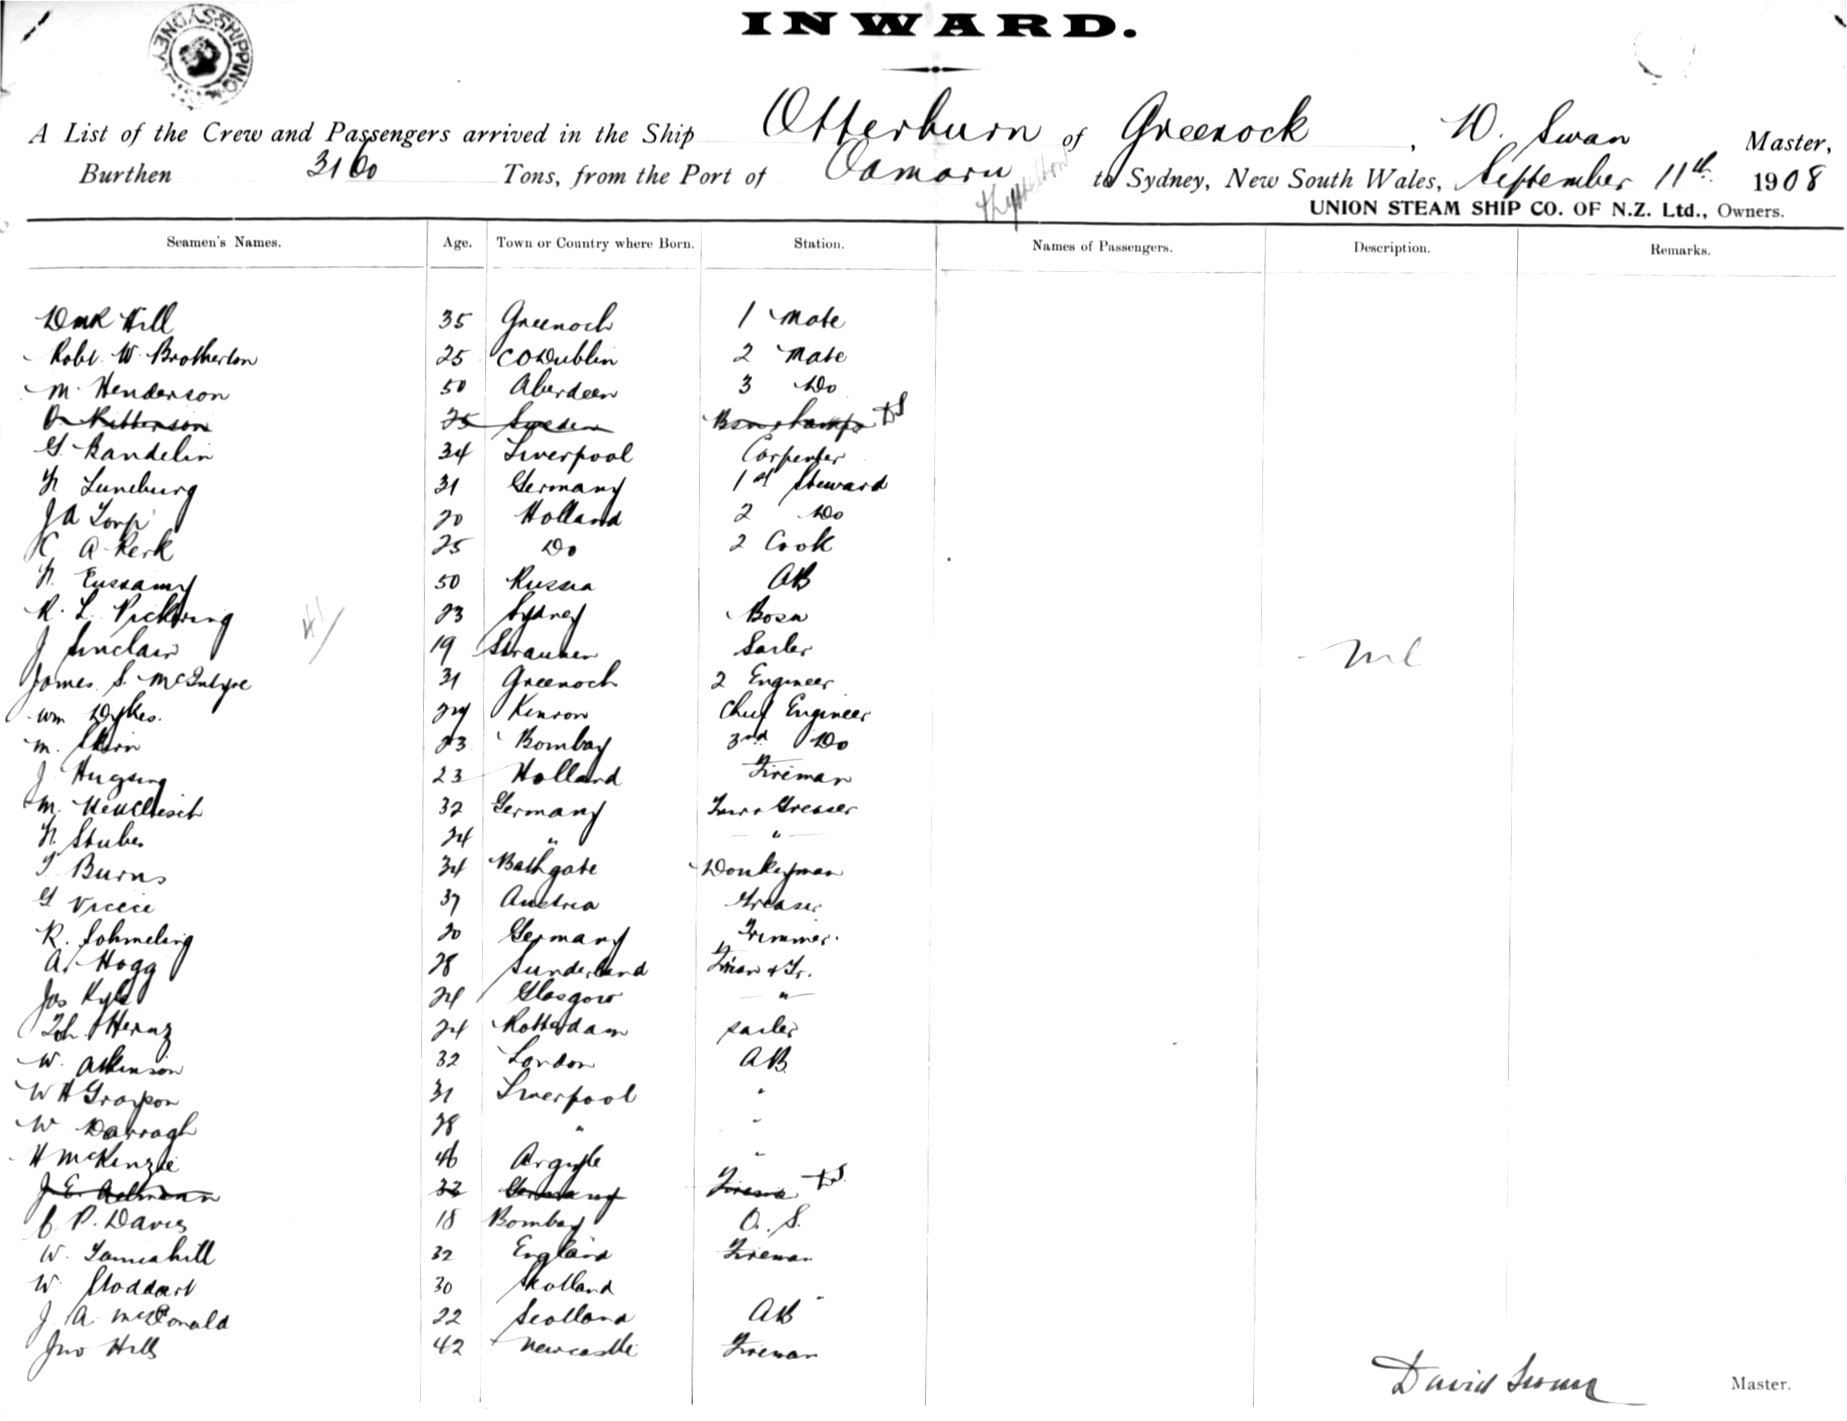 SHIPPING SYDNEY
INWARD.
A List of the Crew and Passengers arrived in the Ship Otterburn of Greenock, D. Swan Master,
Burthen 3160 Tons, from the Port of Oamaru to Sydney, New South Wales, September 11th 1908
UNION STEAM SHIP CO. OF N.Z. Ltd., Owners.
Seamen's Names. Age. Town or Country where Born. Station. Names of Passengers. Description. Remarks.
Hill 35 Greenock 1 Mate
Robt. W. Brotherton 25 CO Dublin 2 Mate
M. Henderson 50 Aberdeen 3 Do
25 Sweden DS
G. Kandelin 34 Liverpool Carpenter
H Luneburg 31 Germany 1st Steward
J A Torp 20 Holland 2 Do
C. A. Kerk 25 Do 2 Cook
50 Russia AB
R. L. Pickering 23 Sydney Bosn
J Sinclair 19 Stranraer Sailer
James S. McIntyre 31 Greenock 2 Engineer
Wm Dykes. 24 Chief Engineer
M. 23 Bombay 3rd Do
J. 23 Holland Fireman
M. 32 Germany Greaser
H. Stuber 24 " "
T Burns 34 Bathgate Donkeyman
G 37 Austria Greaser
R. Sohmeling 20 Germany Trimmer.
A. Hogg 28 Sunderland Fman & Tr.
Jas Kyle 24 Glasgow "
24 Rotterdam Sailer
W. Atkinson 32 London AB
W H Grayson 31 Liverpool "
W Darragh 28 " "
H McKenzie 46 Argyle "
J E 32 Germany Fireman DS
P. Davies 18 Bombay O. S.
W. Tannahill 32 England Fireman
W. Stoddart 30 Scotland "
J. A. McDonald 22 Scotland AB
Jno Hills 42 Newcastle Fireman
41
nil
David Swan Master.